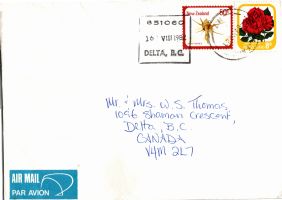 651060
New Zealand
16 VIII 1982
DELTA, B.C.
Mr & Mrs. W.S. Thomas,
1056 Shaman Crescent,
Delta, B.C.
CANADA
V4M 2L7
AIR MAIL
PAR AVION